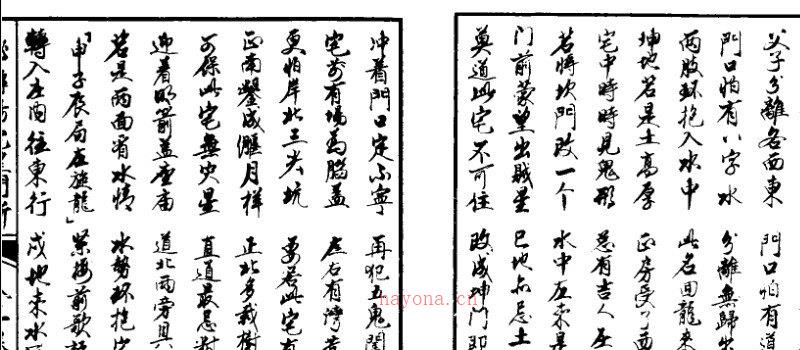 父子分離各西東 門口怕有道
門口怕有八字水 分離無歸
兩股環抱入水中 此名回龍來
坤地若是土高厚 正房受
宅中時時見鬼形 忽有吉人
若將坎門改一个 水中左來是
門前蒙望出賊星 巳地亦忌土
莫道此宅不可住 改成坤門即
冲着門口定不寧 再犯五鬼
宅前有場為腦蓋 左右有灣
更怕岸北三尖坑 要若此宅有
正南鑿成雁月樣 正北多栽樹
可保此宅無灾星 直道最忌對
迎着明箭蓋 廟 道北兩旁
若是兩面有水情 水勢環抱
「申子辰局左旋龍」 緊接前歌
轉入左西往東行 戌地來水
hayona.cn